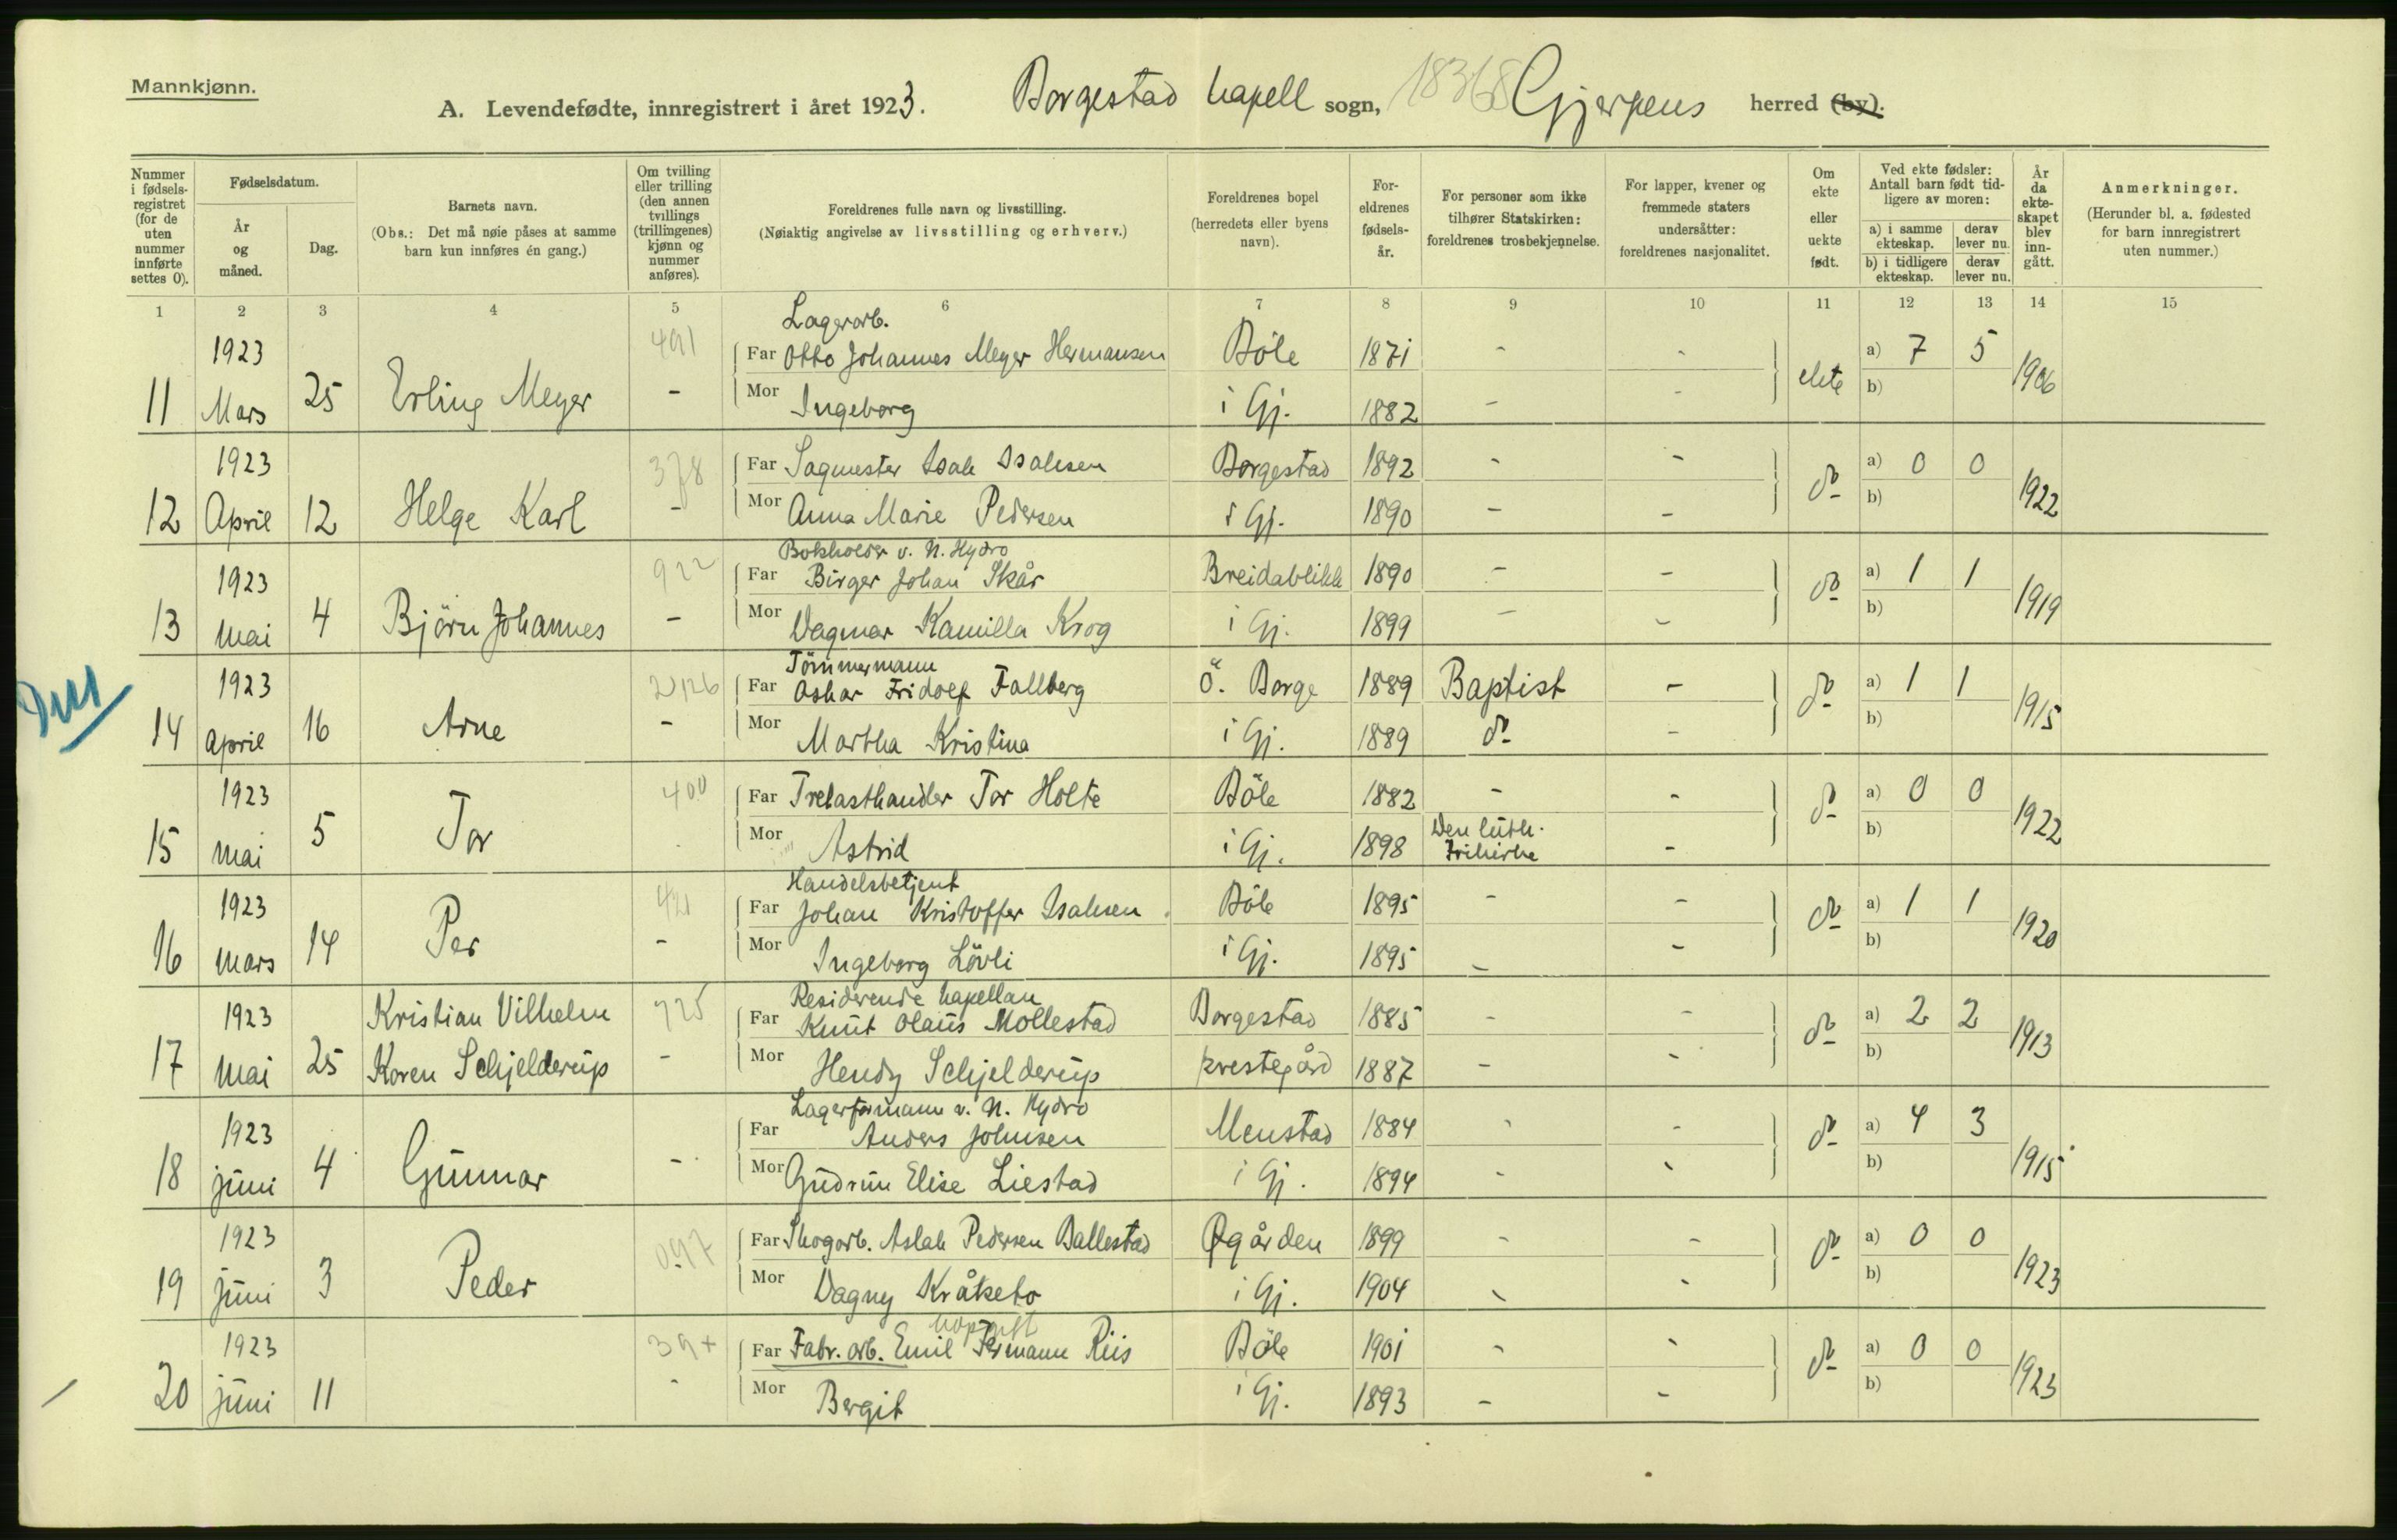 Mannkjønn.
A. Levendefødte, innregistrert i året 1923. Borgestad kapell sogn, Gjerpens herred (by).
Nummer i fødsels-registret (for de uten nummer innførte settes 0).
Fødselsdatum.
År og måned.
Dag.
Barnets navn.
(Obs.: Det må nøie påses at samme barn kun innføres én gang.)
Om tvilling eller trilling (den annen tvillings (trillingenes) kjønn og nummer anføres).
Foreldrenes fulle navn og livsstilling.
(Nøiaktig angivelse av livsstilling og erhverv.)
Foreldrenes bopel (herredets eller byens navn).
For-eldrenes fødsels-år.
For personer som ikke tilhører Statskirken: foreldrenes trosbekjennelse.
For lapper, kvener og fremmede staters undersåtter: foreldrenes nasjonalitet.
Om ekte eller uekte født.
Ved ekte fødsler: Antall barn født tid-ligere av moren:
a) i samme ekteskap. derav lever nu.
b) i tidligere ekteskap. derav lever nu.
År da ekte-skapet blev inn-gått.
Anmerkninger.
(Herunder bl. a. fødested for barn innregistrert uten nummer.)
1 2 3 4 5 6 7 8 9 10 11 12 13 14 15
Lagerarb.
1923 491 Far Otto Johannes Meyer Hermansen Böle 1871 - - a) 7 5
11 Mars 25 Erling Meyer - Mor Ingeborg i Gj. 1882 - - ekte b) 1906
1923 378 Far Sagmester Isak Isaksen Borgestad 1892 - - a) 0 0
12 April 12 Helge Karl - Mor Anna Marie Pedersen i Gj. 1890 - - do b) 1922
Bokholder v. N. Hydro
1923 922 Far Birger Johan Skår Breidablikk 1890 - - a) 1 1
13 Mai 4 Björn Johannes - Mor Dagmar Kamilla Krog i Gj. 1899 - - do b) 1919
Tömmermann
1923 Far Oskar Fridolf Fallberg Ö. Borge 1889 Baptist - a) 1 1
14 April 16 Arne - Mor Martha Kristina i Gj. 1889 do - do b) 1915
1923 400 Far Trelasthandler Tor Holte Böle 1882 - - a) 0 0
15 Mai 5 Tor Mor Astrid i Gj. 1898 Den luth. Frikirke - do b) 1922
Handelsbetjent
1923 421 Far Johan Kristoffer Isaksen Böle 1895 - - a) 1 1
16 Mars 14 Per - Mor Ingeborg Lövli i Gj. 1895 - - do b) 1920
Residerende kapellan
1923 Kristian Vilhelm Far Knut Olaus Mollestad Borgestad 1885 - - a) 2 2
17 Mai 25 Koren Schjelderup - Mor Hendy Schjelderup prestegård 1887 - - do b) 1913
Lagerformann v. N. Hydro
1923 Far Anders Johnsen Menstad 1884 - - a) 4 3
18 juni 4 Gunnar - Mor Gudrun Elise Liestad i Gj. 1894 - - do b) 1915
1923 097 Far Skogarb. Aslak Pedersen Ballestad Øgården 1899 - - a) 0 0
19 juni 3 Peder Mor Dagny Kråkebo i Gj. 1904 - - do b) 1923
1923 Far Fabr. arb. Emil Riis Böle 1901 - - a) 0 0
20 juni 11 - Mor Bergit i Gj. 1893 - - do b) 1923